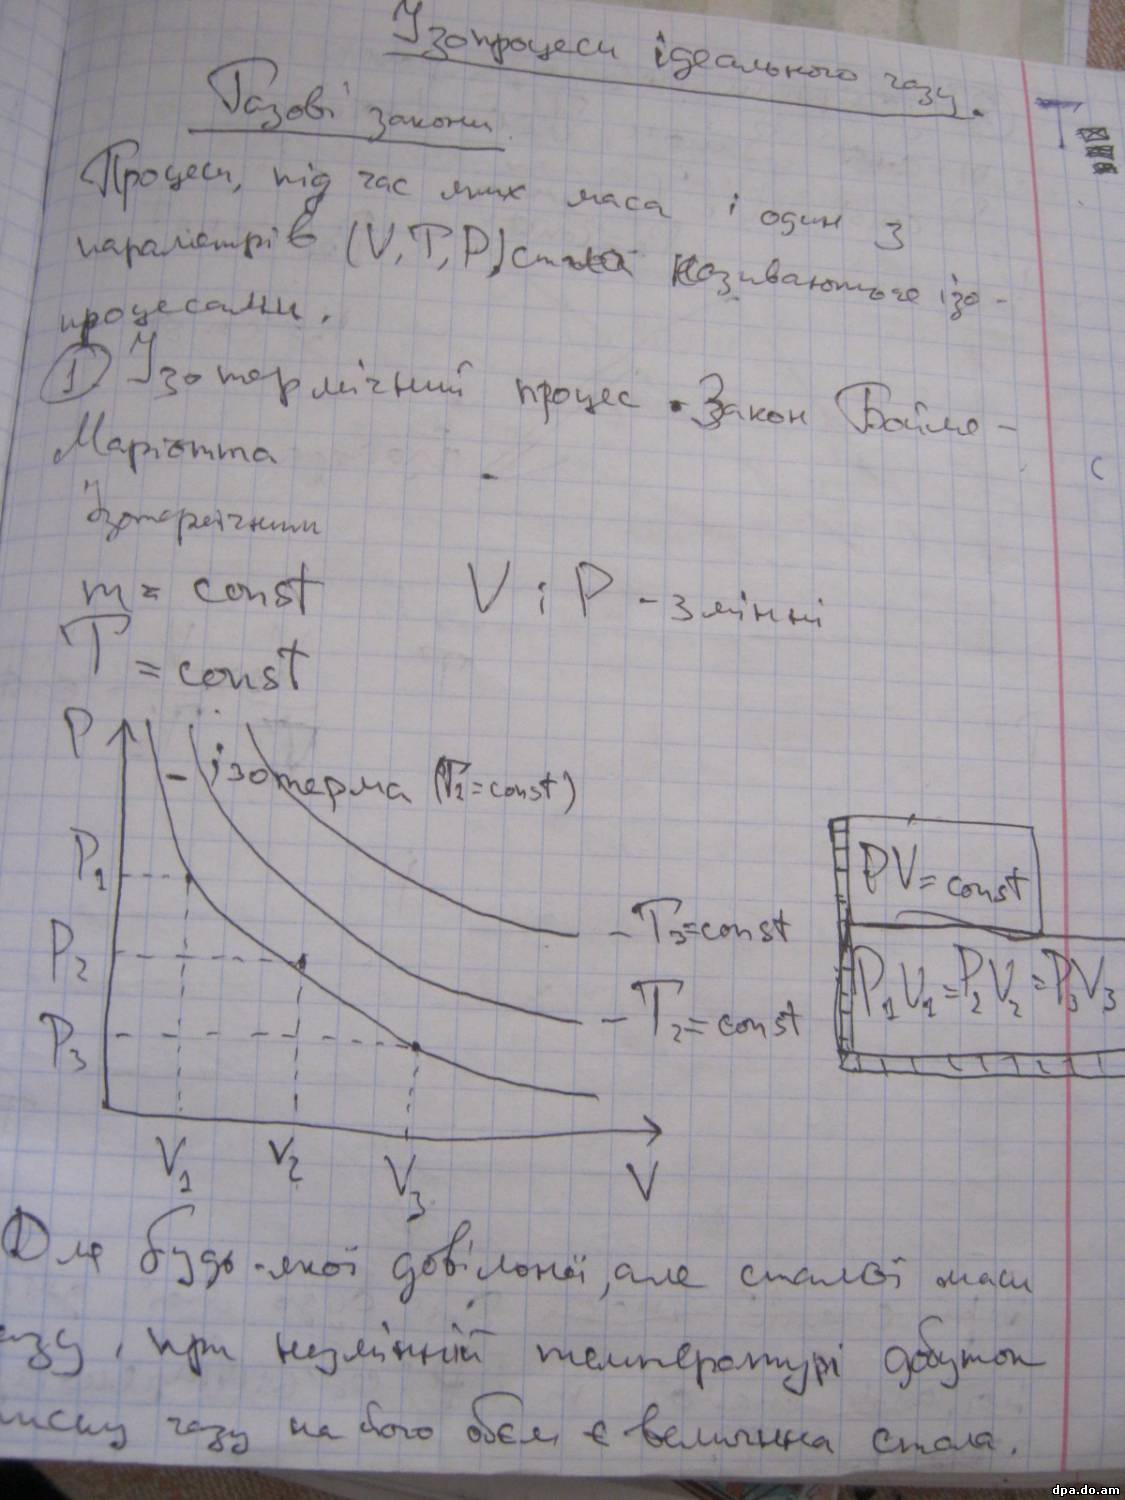 Ізопроцеси ідеального газу.
Газові закони
Процеси, під час яких маса і один з
параметрів (V, T, P) сталі називаються ізо-
процесами.
① Ізотермічний процес. Закон Бойля-
Маріотта
Ізотермічним
m = const V і P - змінні
T = const
P
- ізотерма (T2 = const)
P1
PV = const
- T3 = const
P2
P1V1 = P2V2 = P3V3
- T2 = const
P3
V1 V2 V3 V
Для будь-якої довільної, але сталої маси
азу, при незмінній температурі добуток
иску газу на його обєм є величина стала.
dpa.do.am